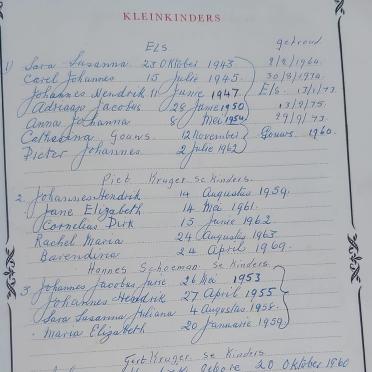 KLEINKINDERS
ELS getroud
1) Sara Susanna 23 Oktober 1943 2/2/1964.
Carel Johannes 15 Julie 1945. 30/8/1970.
Johannes Hendrik 11 Junie 1947. Els.
Adriaan Jacobus 28 Junie 1950 13/9/75.
Anna Johanna 8 Mei 1954 29/9/73.
Catharina Gouws. 12 November Gouws. 1960.
Pieter Johannes 2 Julie 1962
Piet Kruger se Kinders.
2. Johannes Hendrik 14 Augustus 1959.
Jane Elizabeth 14 Mei 1961.
Cornelius Dirk 15 Junie 1962
Rachel Maria 24 Augustus 1963
Barendina 24 April 1969.
Hannes Schoeman se Kinders.
3. Johannes Jacobus Jurie 26 Mei 1953
Johannes Hendrik 27 April 1955
Sara Susanna Juliana 4 Augustus 1958.
Maria Elizabeth 20 Januarie 1959
Gert Kruger se Kinders
Gebore 20 Oktober 1960